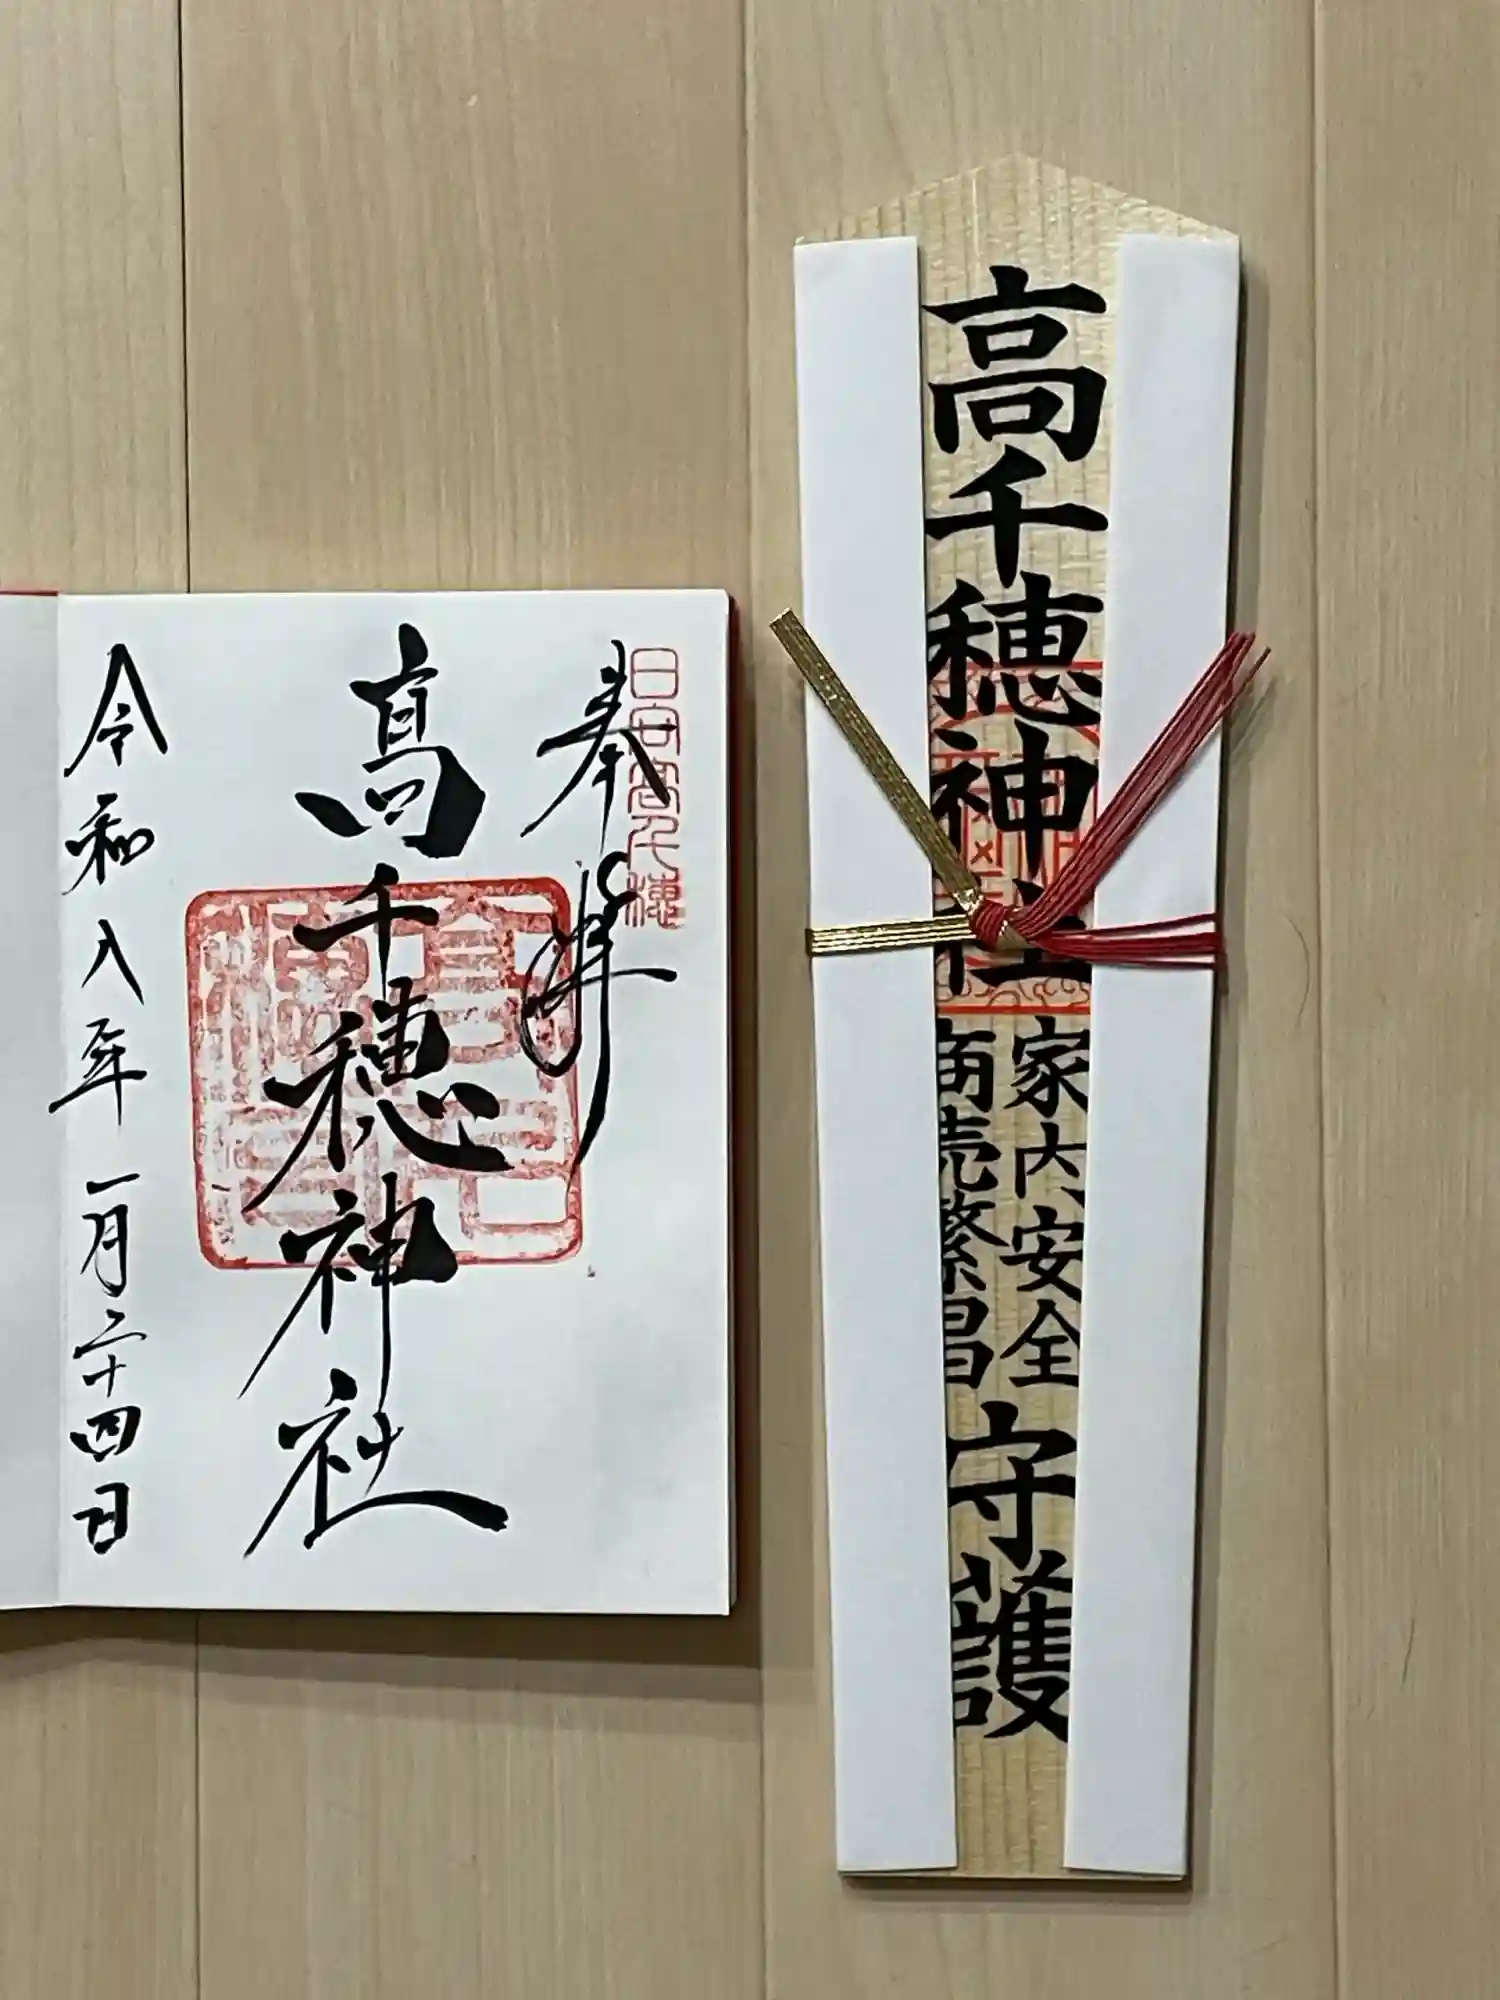 奉拝
日向高千穂
高千穂神社
令和八年一月二十四日
高千穂神社
家内安全
商売繁昌
守護